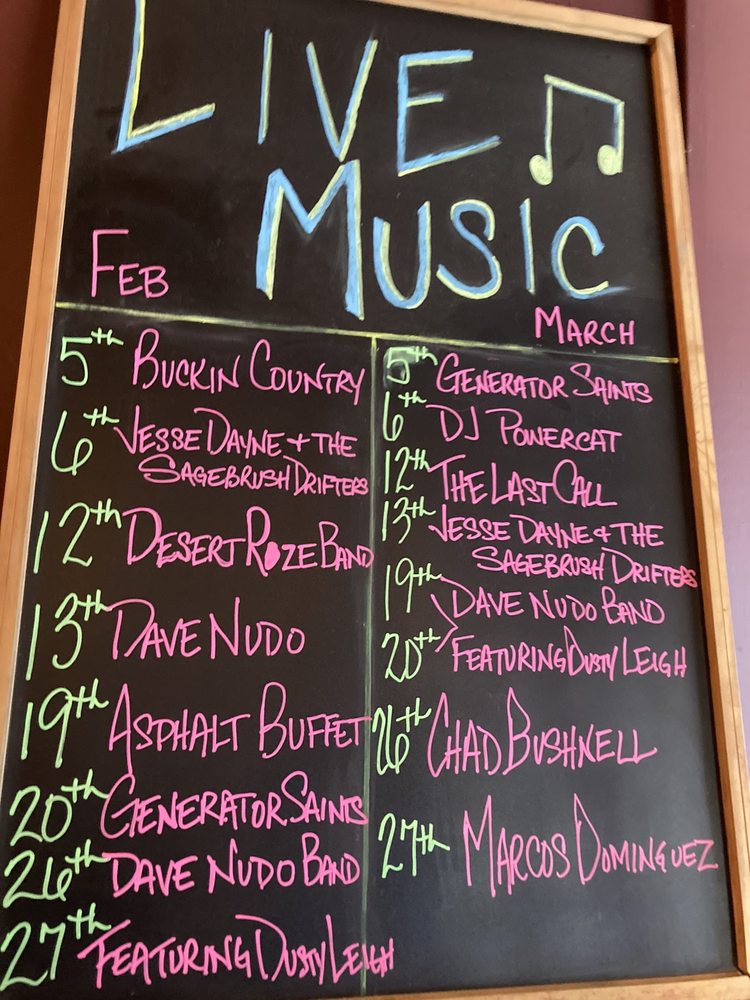 LIVE
MUSIC
FEB
5th BUCKIN COUNTRY
6th JESSE DAYNE + THE
SAGEBRUSH DRIFTERS
12th DESERT ROZE BAND
13th DAVE NUDO
19th ASPHALT BUFFET
20th GENERATOR SAINTS
26th DAVE NUDO BAND
27th FEATURING DUSTY LEIGH
MARCH
5th GENERATOR SAINTS
6th DJ POWERCAT
12th THE LAST CALL
13th JESSE DAYNE + THE
SAGEBRUSH DRIFTERS
19th DAVE NUDO BAND
20th FEATURING DUSTY LEIGH
26th CHAD BUSHNELL
27th MARCOS DOMINGUEZ